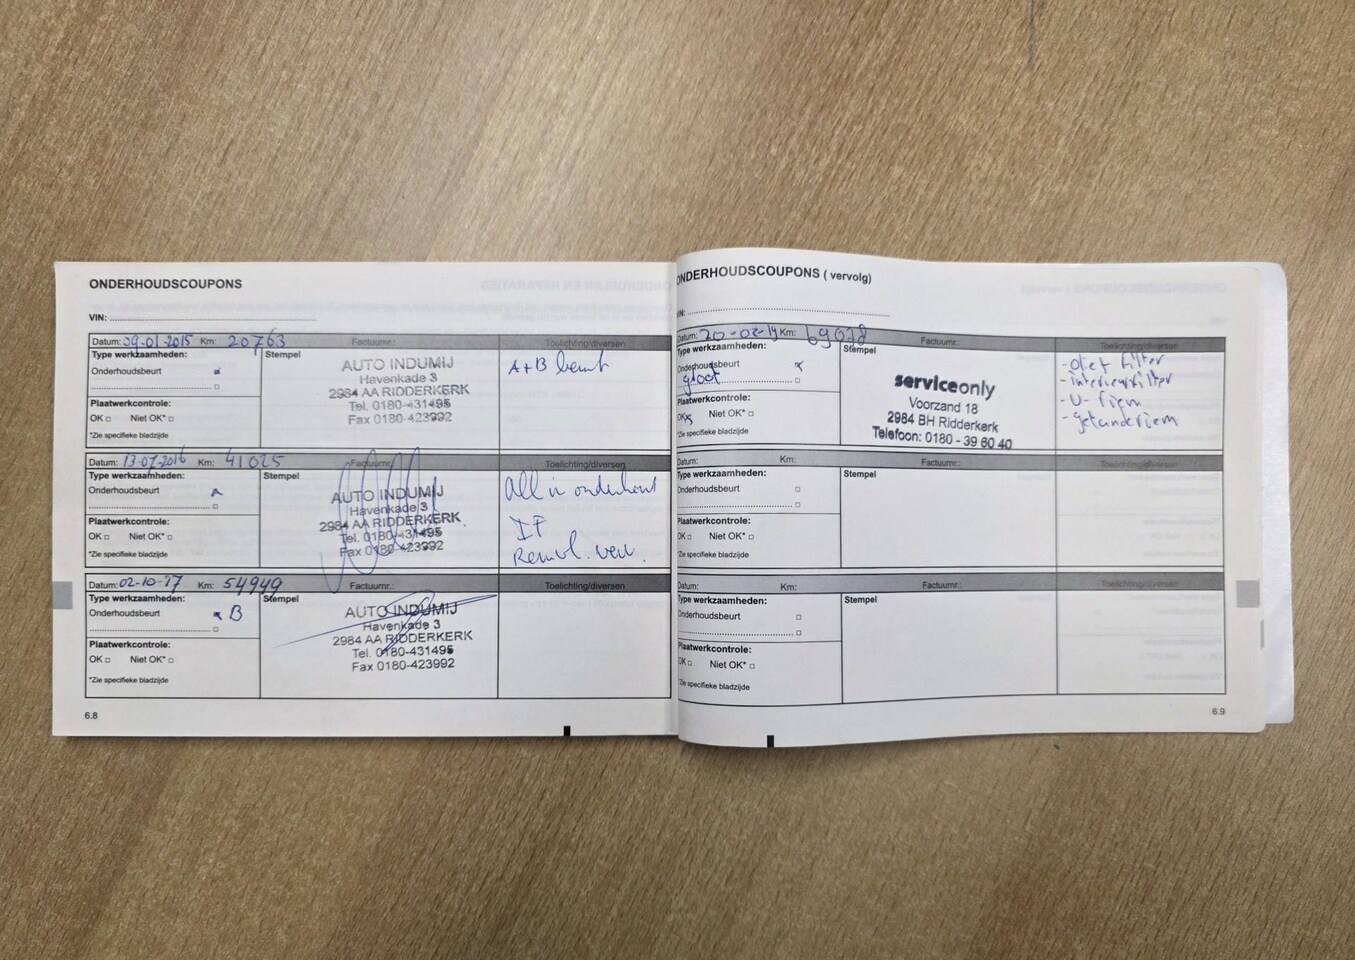 ONDERHOUDSCOUPONS
VIN:
Datum: 09-01-2015 Km: 20763 Factuurnr.: Toelichting/diversen
Type werkzaamheden: Stempel
Onderhoudsbeurt
Plaatwerkcontrole:
OK Niet OK*
*Zie specifieke bladzijde
AUTO INDUMIJ
Havenkade 3
2984 AA RIDDERKERK
Tel. 0180-431495
Fax 0180-423992
A+B beurt
Datum: 13-07-2016 Km: 41025 Factuurnr.: Toelichting/diversen
Type werkzaamheden: Stempel
Onderhoudsbeurt
Plaatwerkcontrole:
OK Niet OK*
*Zie specifieke bladzijde
AUTO INDUMIJ
Havenkade 3
2984 AA RIDDERKERK
Tel. 0180-431495
Fax 0180-423992
All in onderhout
IF
Remvl. verv.
Datum: 02-10-17 Km: 54949 Factuurnr.: Toelichting/diversen
Type werkzaamheden: Stempel
Onderhoudsbeurt B
Plaatwerkcontrole:
OK Niet OK*
*Zie specifieke bladzijde
AUTO INDUMIJ
Havenkade 3
2984 AA RIDDERKERK
Tel. 0180-431495
Fax 0180-423992
6.8
ONDERHOUDSCOUPONS ( vervolg)
Datum: 20-02-19 Km: 69078 Factuurnr.: Toelichting/diversen
Type werkzaamheden: Stempel
Onderhoudsbeurt
groot
Plaatwerkcontrole:
OK Niet OK*
*Zie specifieke bladzijde
serviceonly
Voorzand 18
2984 BH Ridderkerk
Telefoon: 0180 - 39 60 40
- olie + filter
- interieurfilter
- V-riem
- getanderiem
Datum: Km: Factuurnr.: Toelichting/diversen
Type werkzaamheden: Stempel
Onderhoudsbeurt
Plaatwerkcontrole:
OK Niet OK*
*Zie specifieke bladzijde
Datum: Km: Factuurnr.: Toelichting/diversen
Type werkzaamheden: Stempel
Onderhoudsbeurt
Plaatwerkcontrole:
OK Niet OK*
*Zie specifieke bladzijde
6.9